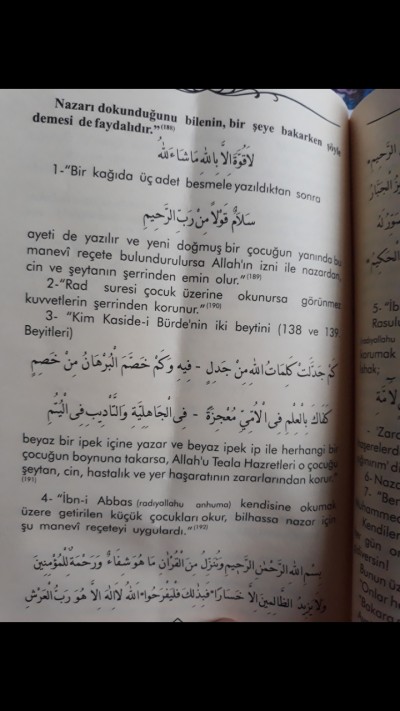 Nazarı dokunduğunu bilenin, bir şeye bakarken şöyle
demesi de faydalıdır."(186)
لَاقُوَّةَ اِلَّا بِاللّٰهِ مَاشَاءَ اللّٰهُ
1-"Bir kağıda üç adet besmele yazıldıktan sonra
سَلَامٌ قَوْلًا مِنْ رَبِّ الرَّحِيمِ
ayeti de yazılır ve yeni doğmuş bir çocuğun yanında bu
manevî reçete bulundurulursa Allah'ın izni ile nazardan,
cin ve şeytanın şerrinden emin olur."(189)
2-"Rad suresi çocuk üzerine okunursa görünmez
kuvvetlerin şerrinden korunur."(190)
3- "Kim Kaside-i Bürde'nin iki beytini (138 ve 139.
Beyitleri)
كَمْ جَدَلَتْ كَلِمَاتُ اللّٰهِ مِنْ جَدِلٍ - فِيهِ وَكَمْ خَصَّمَ الْبُرْهَانُ مِنْ خَصِمٍ
كَفَاكَ بِالْعِلْمِ فِى الْاُمِّىِّ مُعْجِزَةً - فِى الْجَاهِلِيَّةِ وَالتَّأْدِيبِ فِى الْيُتُمِ
beyaz bir ipek içine yazar ve beyaz ipek ip ile herhangi bir
çocuğun boynuna takarsa, Allah'u Teala Hazretleri o çocuğu
şeytan, cin, hastalık ve yer haşaratının zararlarından korur."
(191)
4- "İbn-i Abbas (radıyallahu anhuma) kendisine okumak
üzere getirilen küçük çocukları okur, bilhassa nazar için
şu manevî reçeteyi uygulardı."(193)
بِسْمِ اللّٰهِ الرَّحْمٰنِ الرَّحِيمِ وَنُنَزِّلُ مِنَ الْقُرْاٰنِ مَا هُوَ شِفَاءٌ وَرَحْمَةٌ لِلْمُؤْمِنِينَ
وَلَا يَزِيدُ الظَّالِمِينَ اِلَّا خَسَارًا فَبِذٰلِكَ فَلْيَفْرَحُوا اَللّٰهُ لَااِلٰهَ اِلَّا هُوَ رَبُّ الْعَرْشِ
الرَّحِيمِ
الْحَكِيمُ
5- "İb
Rasulu
(radıyallahu
korumak
lahak;
- 'Zarar
6- Nazar
7- "Ber
Muhammed
Kendiler
her gün or
Bunun üz
"Onlar h
"Bakara